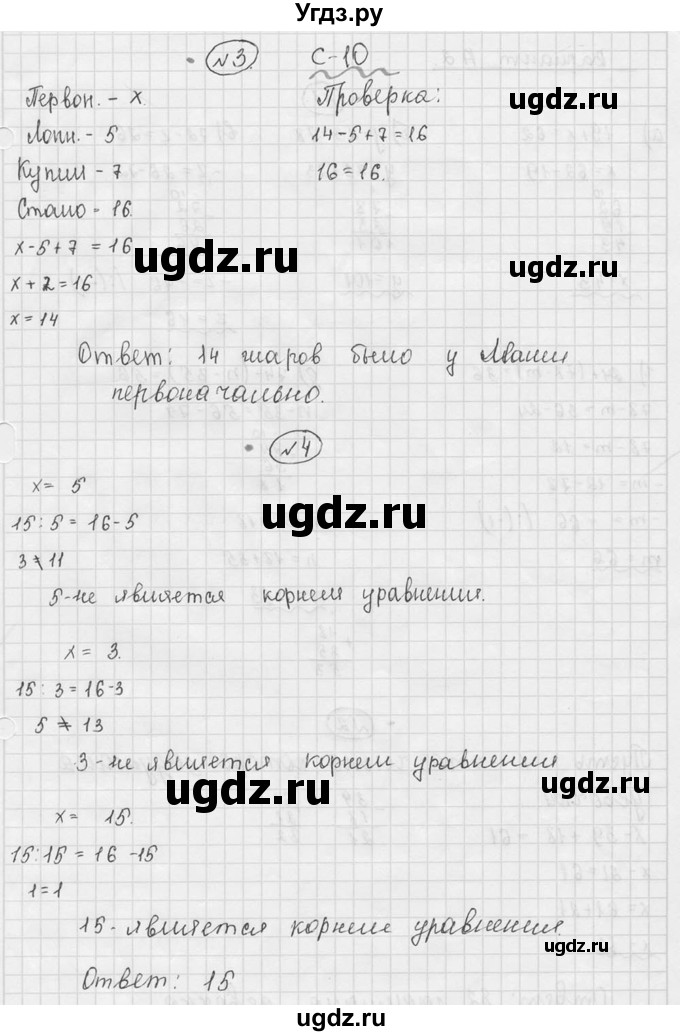 Угдз.ру
№3. С-10
Первон. - х.
Лопн. - 5
Купили - 7
Стало - 16.
х-5+7 = 16
х + 2 = 16
х = 14
Проверка:
14-5+7 = 16
16 = 16.
Ответ: 14 шаров было у Маши
первоначально.
№4
х = 5
15 : 5 = 16-5
3 ≠ 11
5-не является корнем уравнения.
х = 3.
15 : 3 = 16-3
5 ≠ 13
3-не является корнем уравнения
х = 15.
15:15 = 16 -15
1=1
15- является корнем уравнения
Ответ: 15
ugdz.ru
ugdz.ru
ugdz.ru
ugdz.ru
ugdz.ru
ugdz.ru
ugdz.ru
ugdz.ru
ugdz.ru
ugdz.ru